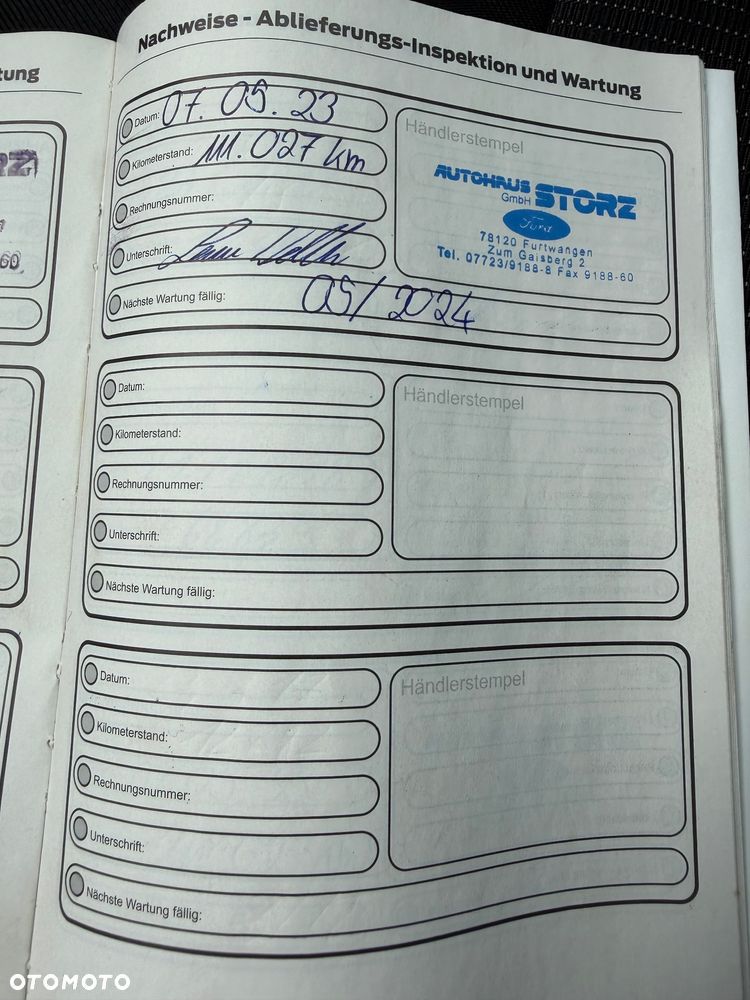 tung
Nachweise - Ablieferungs-Inspektion und Wartung
Datum: 07. 05. 23
Kilometerstand: 111.027 km
Rechnungsnummer:
Unterschrift:
Nächste Wartung fällig: 05/2024
Händlerstempel
AUTOHAUS STORZ
GmbH
Ford
78120 Furtwangen
Zum Gaisberg 2
Tel. 07723/9188-8 Fax 9188-60
60
Datum:
Kilometerstand:
Rechnungsnummer:
Unterschrift:
Nächste Wartung fällig:
Händlerstempel
Datum:
Kilometerstand:
Rechnungsnummer:
Unterschrift:
Nächste Wartung fällig:
Händlerstempel
OTOMOTO